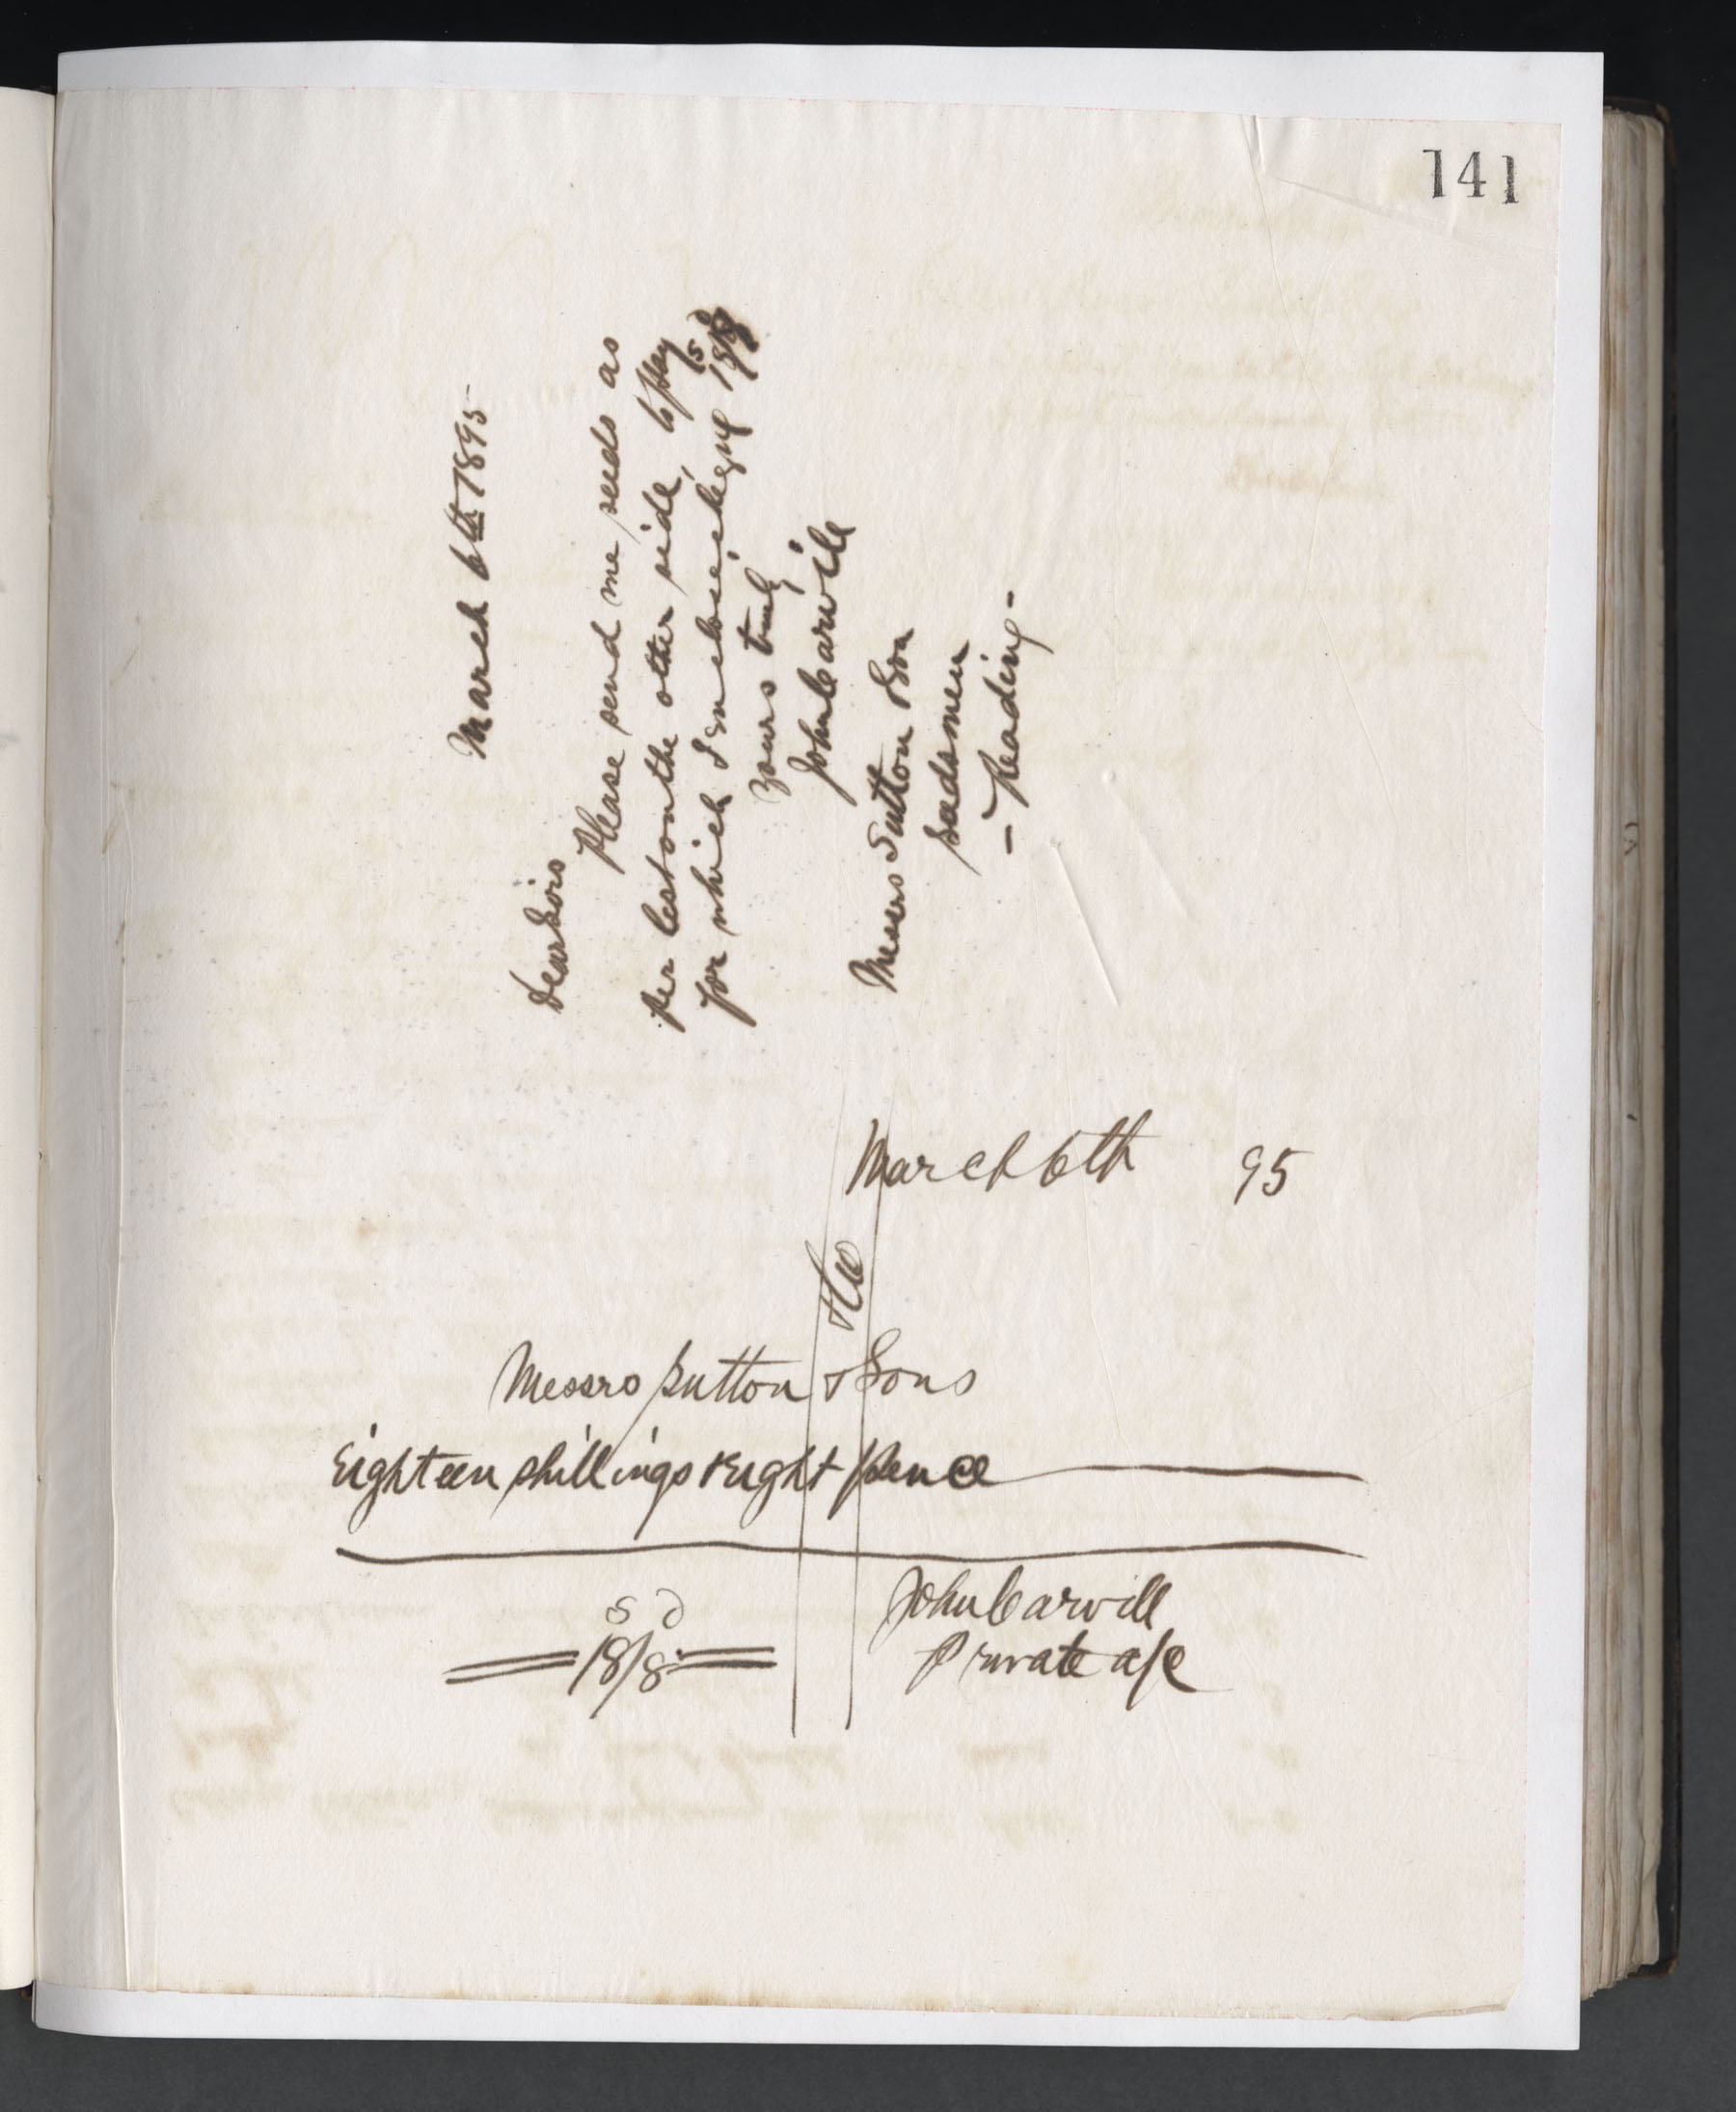 141
March 6th 1895
Dear Sirs
Please send me seeds as
per lest on the other side, to pay
for which I Enclose cheque 18s/8d
yours truly
John Carvill
Messrs Sutton & Son
Seedsmen
- Reading -
March 6th 95
& Co
Messrs Sutton & Sons
Eighteen shillings & Eight pence
s d
18/8
John Carvill
Private a/c